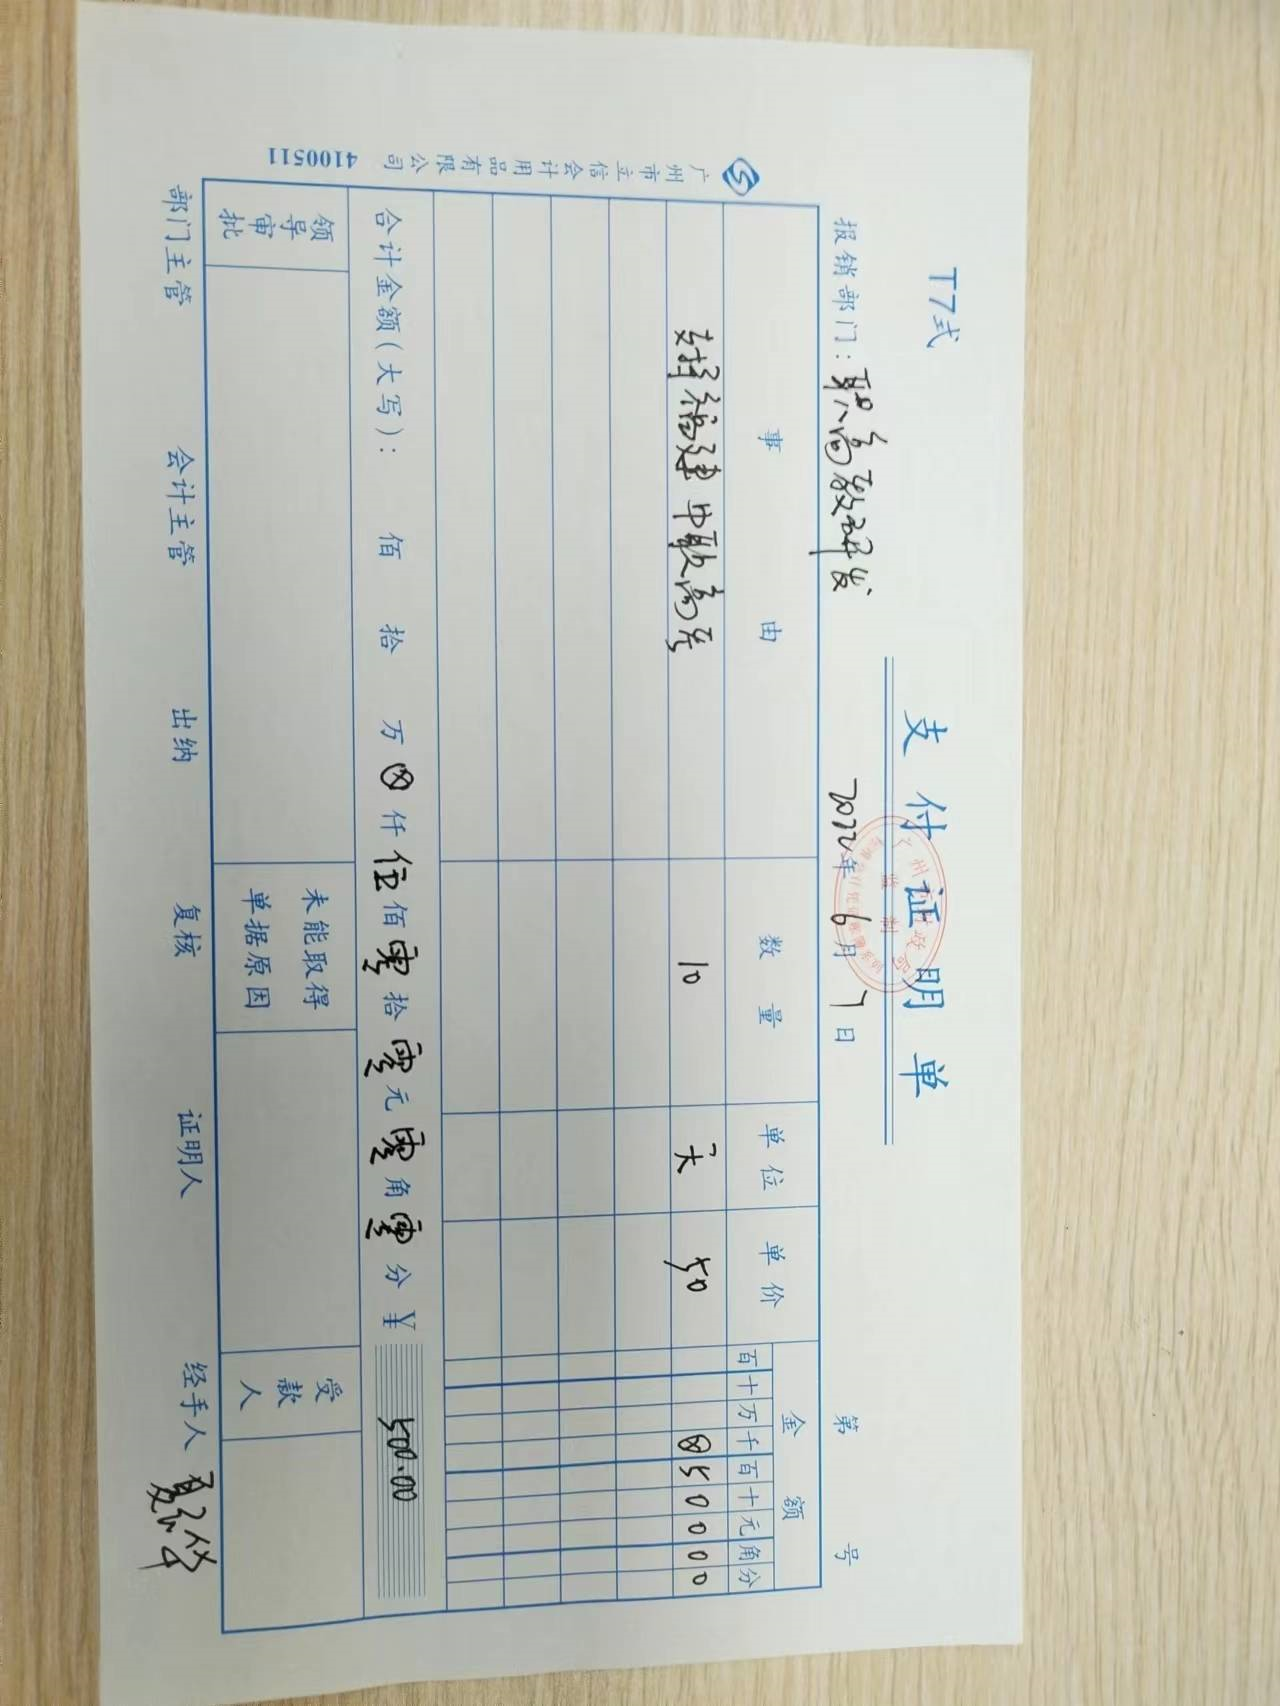 T7式
支付证明单
报销部门：职高教研发 2022年6月7日 第 号
事由 数量 单位 单价 金额
百十万千百十元角分
支持福建中职高考 10 天 50 ⊗50000
合计金额(大写): 佰 拾 万⊗仟伍佰零拾零元零角零分 ¥500.00
领导审批 未能取得单据原因 受款人
部门主管 会计主管 出纳 复核 证明人 经手人
广州市立信会计用品有限公司 4100511